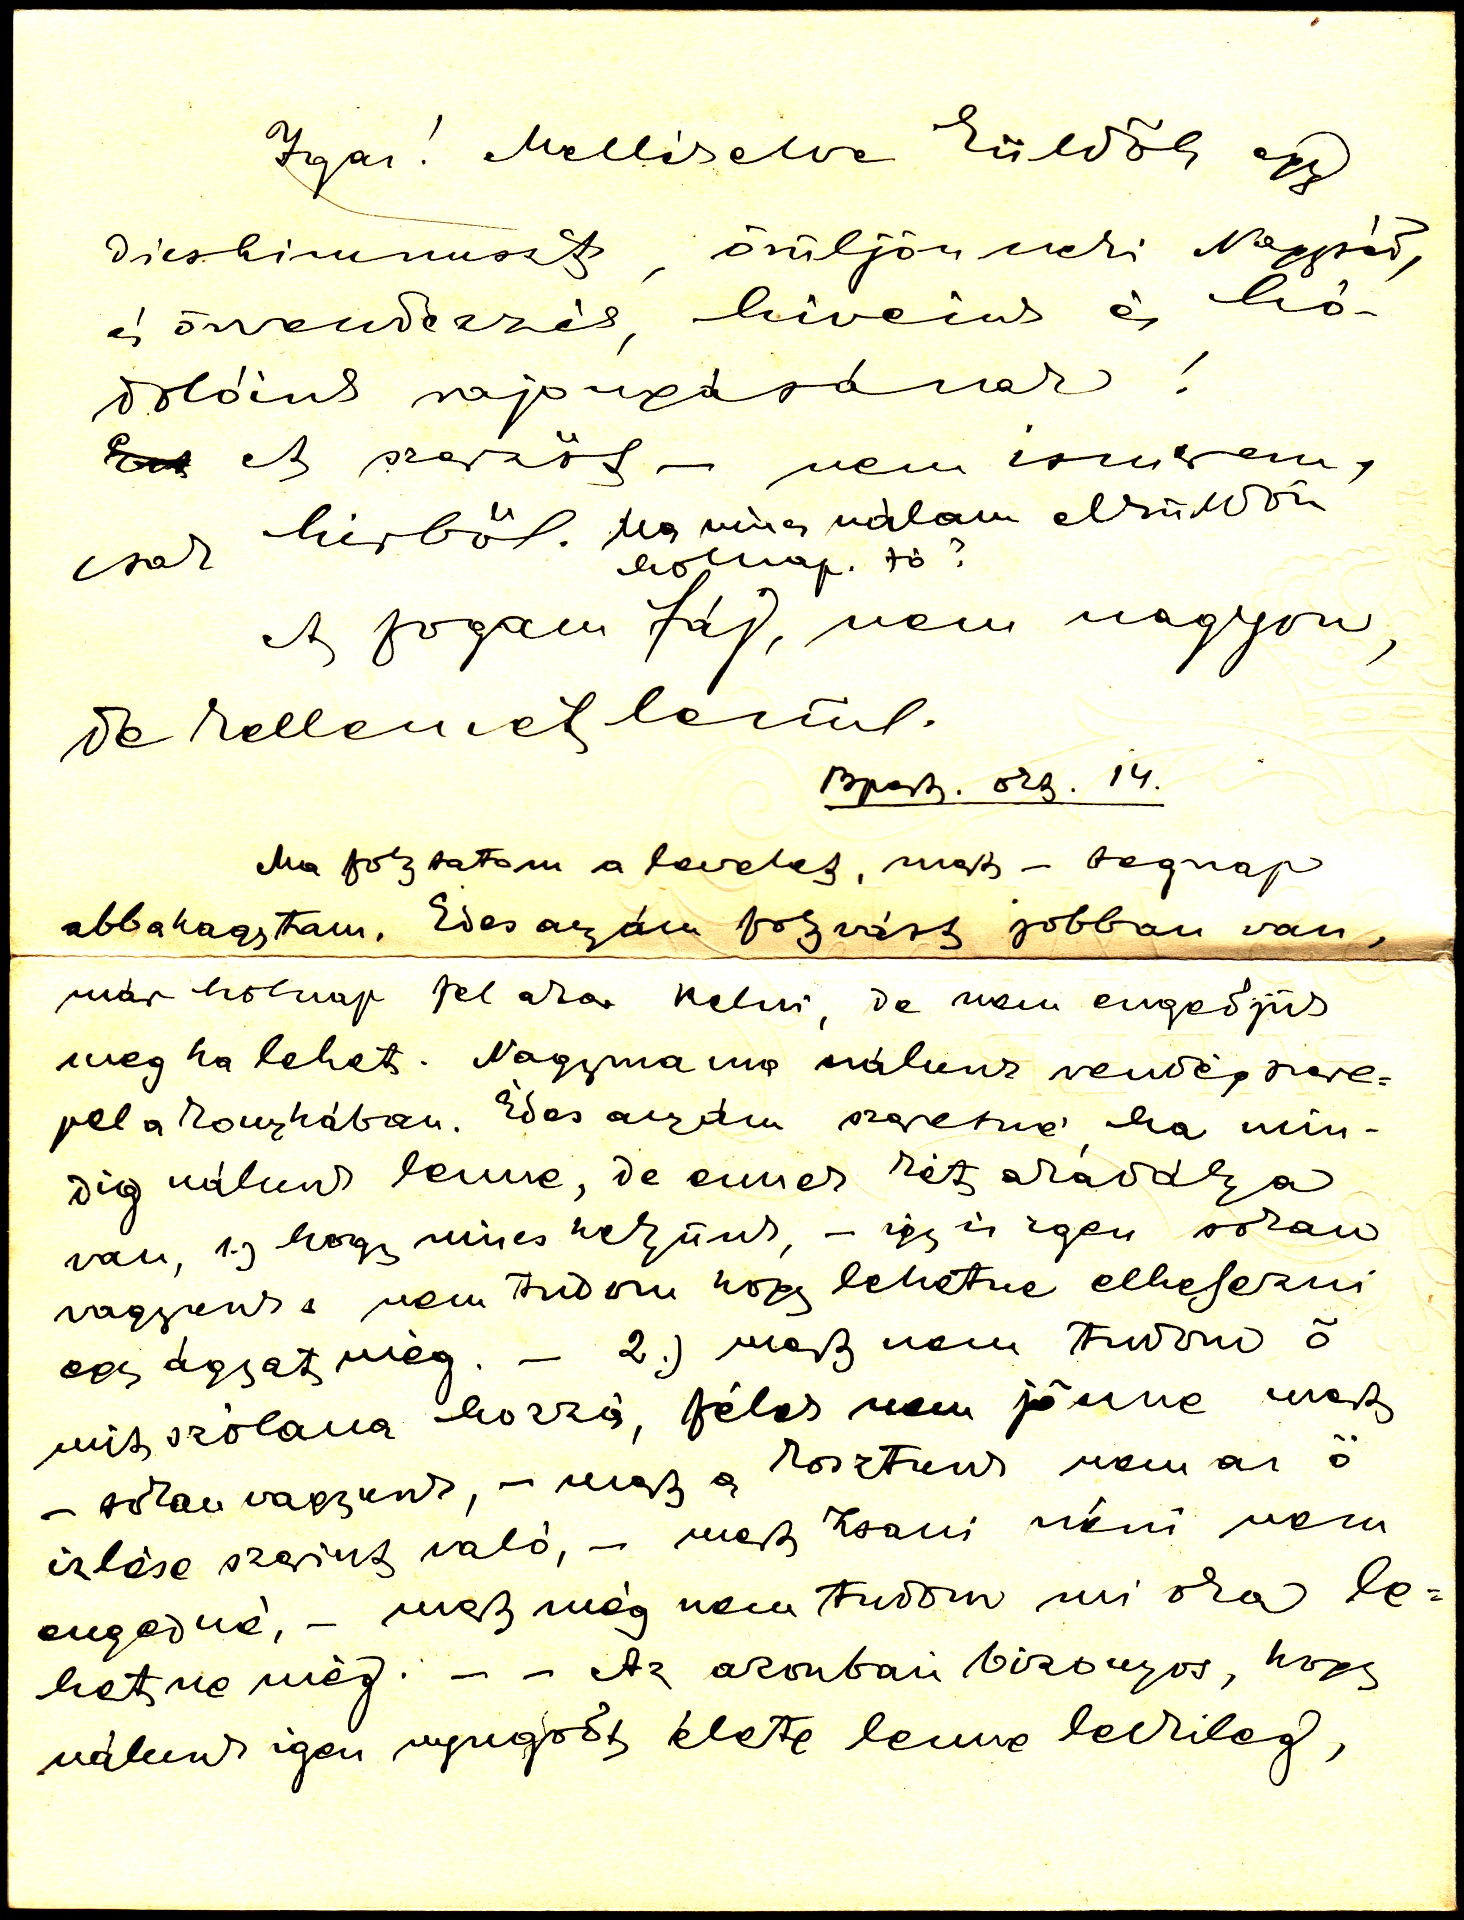 Igaz! Mellékelve küldök egy
dicshimnuszt, örüljön neki Nagysád,
és örvendezzék, hiveink és hó-
dolóink rajongásának!
A szerzőt – nem ismerem,
csak hirből. Ma nincs nálam elküldöm
holnap. Jó?
A fogam fáj, nem nagyon,
de kellemetlenül.
Bpest. okt. 14.
Ma folytatom a levelet, mert – tegnap
abbahagytam. Édesanyám folyvást jobban van,
már holnap fel akar kelni, de nem engedjük
meg ha lehet. Nagymama nálunk vendégszere=
pel a konyhában. Édesanyám szeretné, ha min-
dig nálunk lenne, de ennek két akadálya
van, 1.) hogy nincs helyünk, – igy is igen sokan
vagyunk s nem tudom hogy lehetne elhelyezni
egy ágyat még. – 2.) mert nem tudom ő
mit szólana hozzá, félek nem jönne mert
– sokan vagyunk, – mert a kosztunk nem az ő
izlése szerint való, – mert Zsani néni nem
engedné, – mert még nem tudom mi oka le=
hetne még. – – Az azonban bizonyos, hogy
nálunk igen nyugodt élete lenne lelkileg,